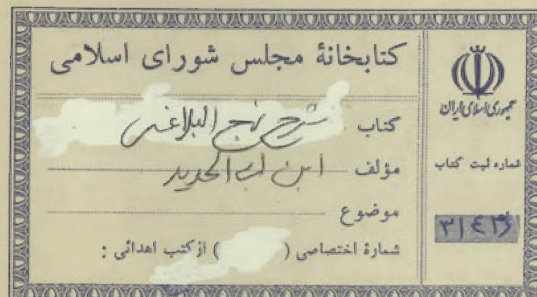 کتابخانهٔ مجلس شورای اسلامی
کتاب شرح نهج البلاغه
مؤلف ابن ابی الحدید
موضوع
شمارهٔ اختصاصی ( ) از کتب اهدائی :
جمهوری اسلامی ایران
شماره ثبت کتاب